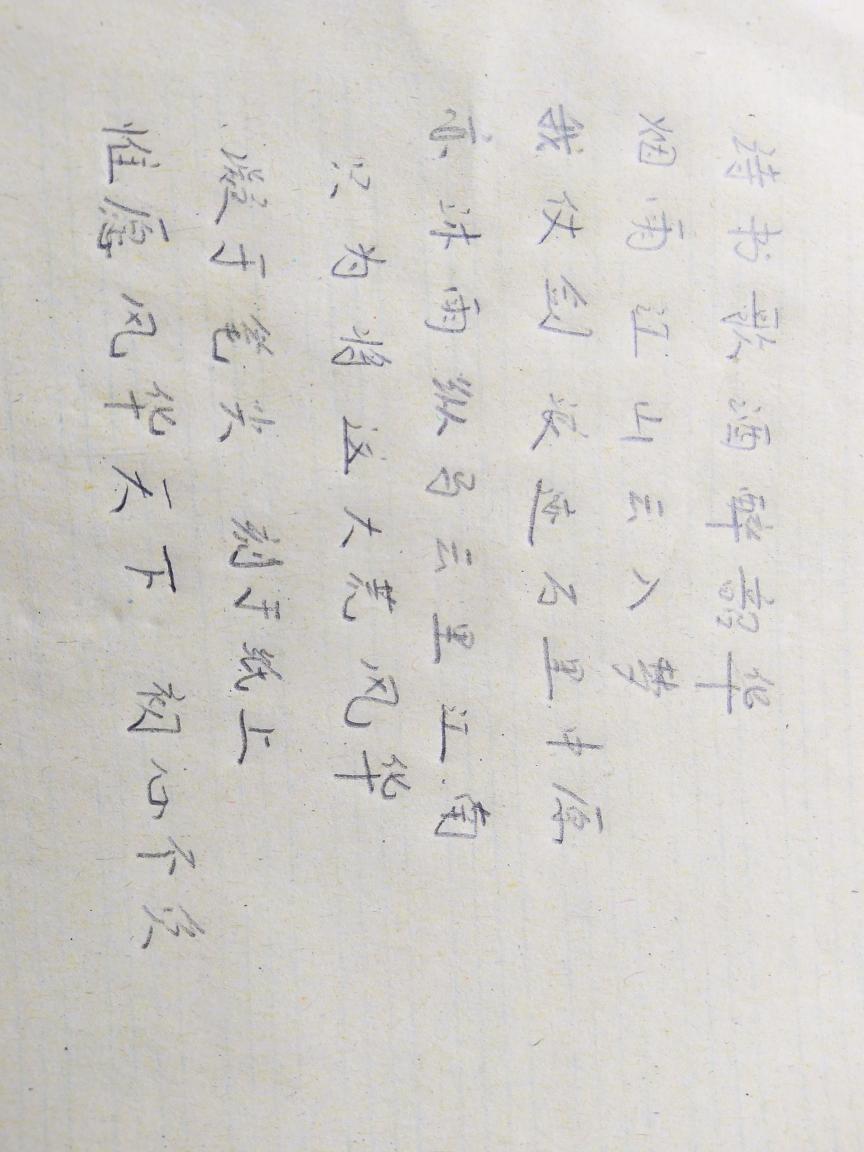 诗书歌酒醉韶华
烟雨江山云入梦
我仗剑浪迹万里中原
亦沐雨纵马云里江南
只为将这大荒风华
凝于笔尖 刻于纸上
惟愿风华天下 初心不负